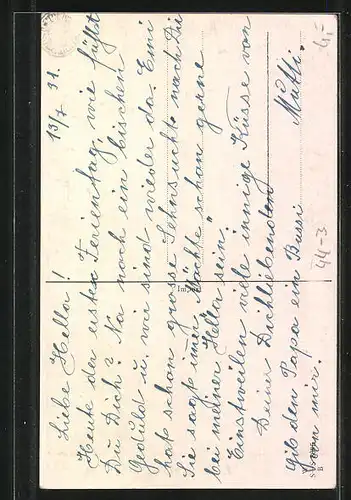 13/7 31.
Liebe Hella!
Heute der erste Ferientag, wie fühlst
Du Dich? Na noch ein bischen
Geduld u. wir sind wieder da. Emi
hat schon grosse Sehnsucht nach Dir
Sie sagt imer "Möchte schon gerne
bei meiner Hella sein".
Einstweilen viele innige Küsse von
Deiner Dichliebenden Mutti
gib den Papa ein Bussi
von mir.
44-3